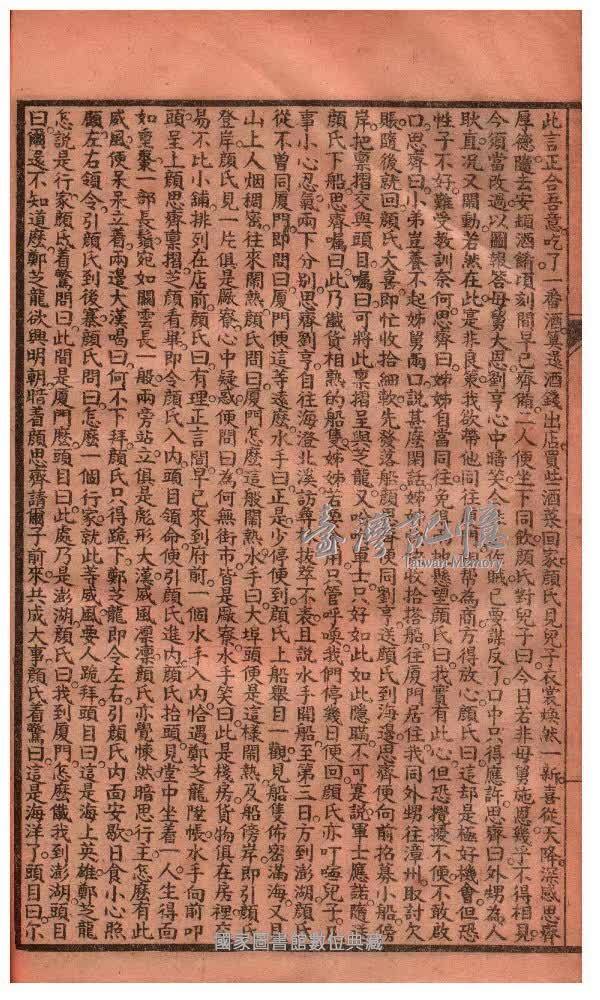 此言正合吾意吃了一番酒算還酒錢出店買些酒菜回家顏氏見兒子衣裳煥然一新喜從天降深感思齊
厚德隨去安頓酒餚頃刻間早已齊備二人便坐下同飲顏氏對兒子曰今日若非母舅施恩幾乎不得相見
今須當改過以圖報答母舅大恩劉亨心中暗笑令作賊已要謀反了口中只得應許思齊曰外甥為人
耿直况又閑勤若然在此寔非良策我欲帶他同往幫為商方得放心顏氏曰這却是極好機會但恐
性子不好難受教訓奈何思齊曰姊姊自當同往免得掛懸望顏氏曰我實有此心但恐攪擾不便不敢啟
口思齊曰小弟荳養不起姊舅兩口說甚麼閑話姊姊收拾搭船往廈門居住我同外甥往漳州取討欠
賬隨後就回顏氏大喜即忙收拾細軟先發落船顏便同劉亨送顏氏到海邊思齊便向前招募小船傍
岸把稟摺交與頭目囑曰可將此稟摺呈與芝龍又吩軍士只好如此如此隱瞞不可寔說軍士應諾隨送
顏氏下船思齊囑曰此乃儎貨相熟的船隻姊姊若要用只管呼喚我們停幾日便回顏氏亦叮嚀兒子凡
事小心忍氣兩下分别思齊劉亨自往海澄北溪訪尋拔萃不表且說水手開船至第三日方到澎湖顏氏
從不曾同廈門即問曰厦門便這等遠麼水手曰正是少停便到顏氏上船舉目一觀見船隻佈密滿海又見
山上人烟稠密往來鬧熱顏氏問曰厦門怎麼這般鬧熱水手曰大埠頭便是這樣鬧熱及船傍岸即引顏氏
登岸顏氏見一片俱是廠寮心中疑惑便問曰為何無街市皆是廠寮水手笑曰此是棧房貨物俱在房裡交
易不比小鋪排列在店前顏氏曰有理正言間早已來到府前一個水手入內恰遇鄭芝龍陞帳水手向前叩
頭呈上顏思齊稟摺芝龍看畢即令顏氏入內頭目領命便引顏氏進內顏氏抬頭見堂中坐着一人生得面
如重棗一部長鬚宛如關雲長一般兩旁站立俱是彪形大漢威風凜凜顏氏亦覺悚然暗思行主怎麼有此
威風便呆呆立着兩邊大漢喝曰何不下拜顏氏只得跪下鄭芝龍即令左右引顏氏內面安歇日食小心照
顧左右領令引顏氏到後寨顏氏問曰怎麼一個行家就此等威風要人跪拜頭目曰這是海上英雄鄭芝龍
怎說是行家顏氏着驚問曰此間是厦門麼頭目曰此處乃是澎湖顏氏曰我到厦門怎麼儎我到澎湖頭目
曰爾還不知道麼鄭芝龍欲興明朝晤着顏思齊請爾子前來共成大事顏氏着驚曰這是海洋了頭目曰尔
臺灣記憶
Taiwan Memory
國家圖書館數位典藏